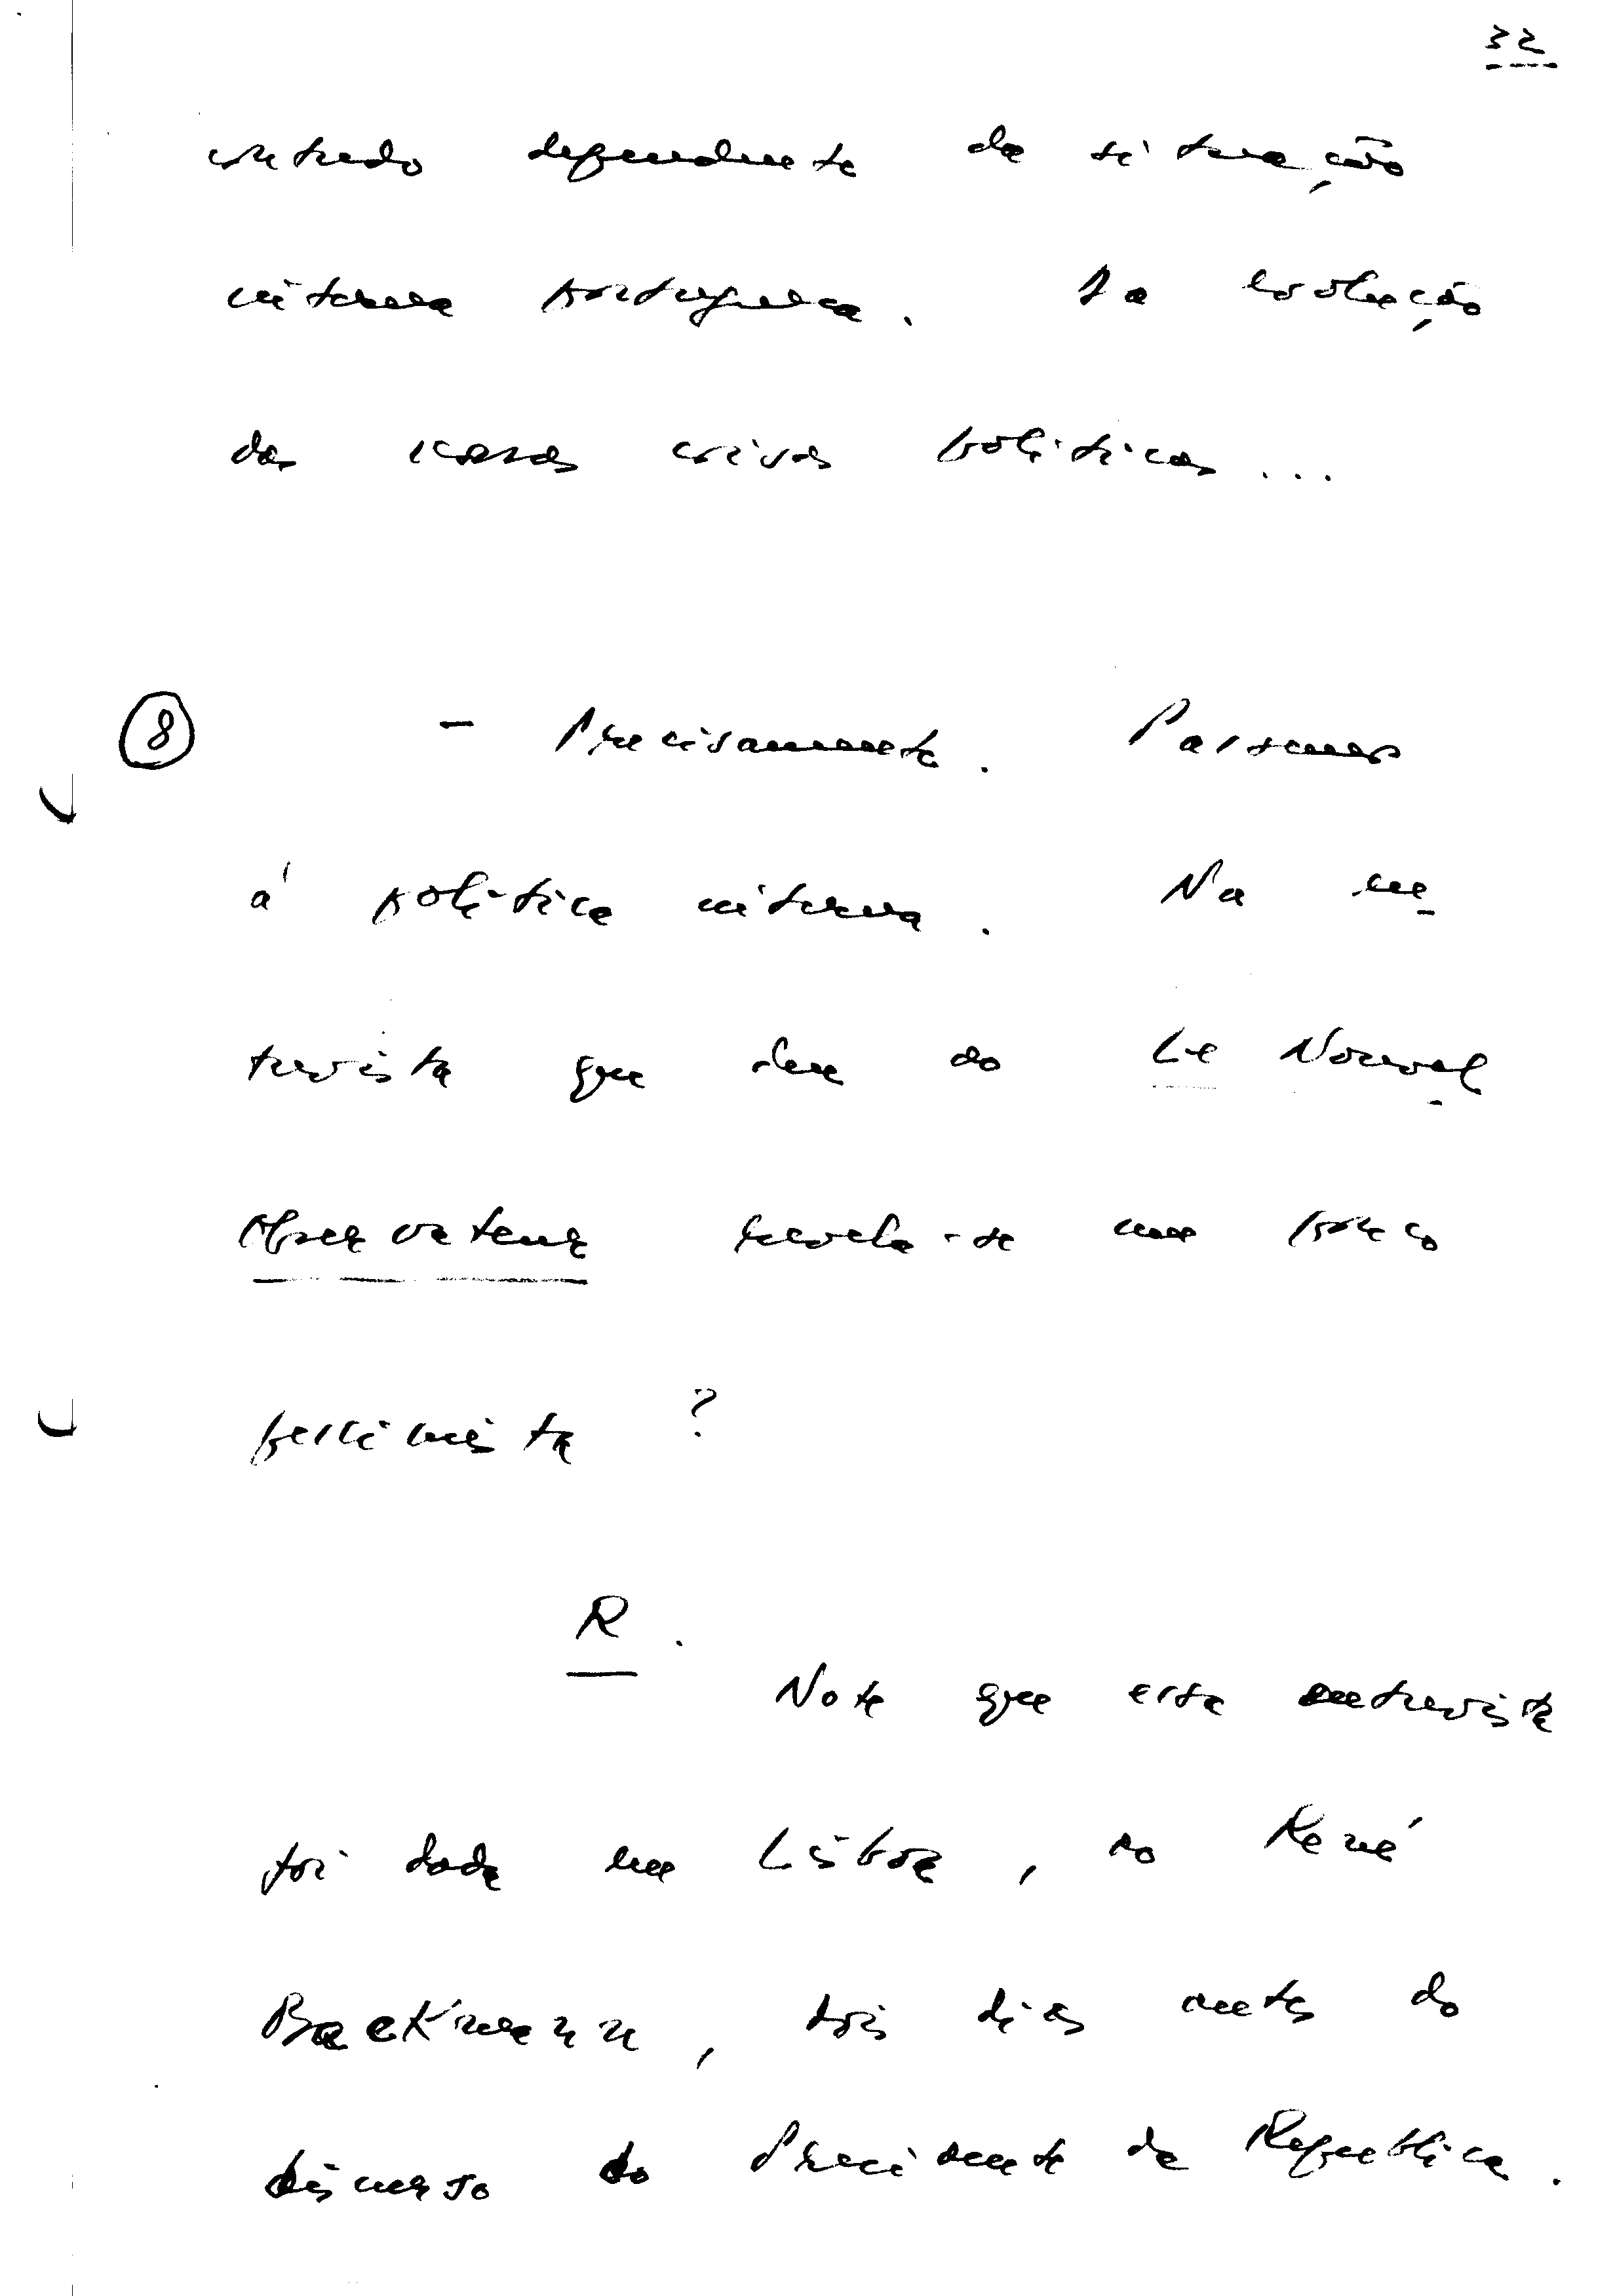 32
contudo dependente da situação
interna portuguesa. Da evolução
das nossas crises políticas...
8 - Precisamente. Passemos
á política interna. Na en-
trevista que deu ao Le Nouvel
Observateur revela-se um pouco
pessimista?
R. Note que essa entrevista
foi dada em Lisboa, ao René
Backmann, dois dias antes do
discurso do Presidente da República.